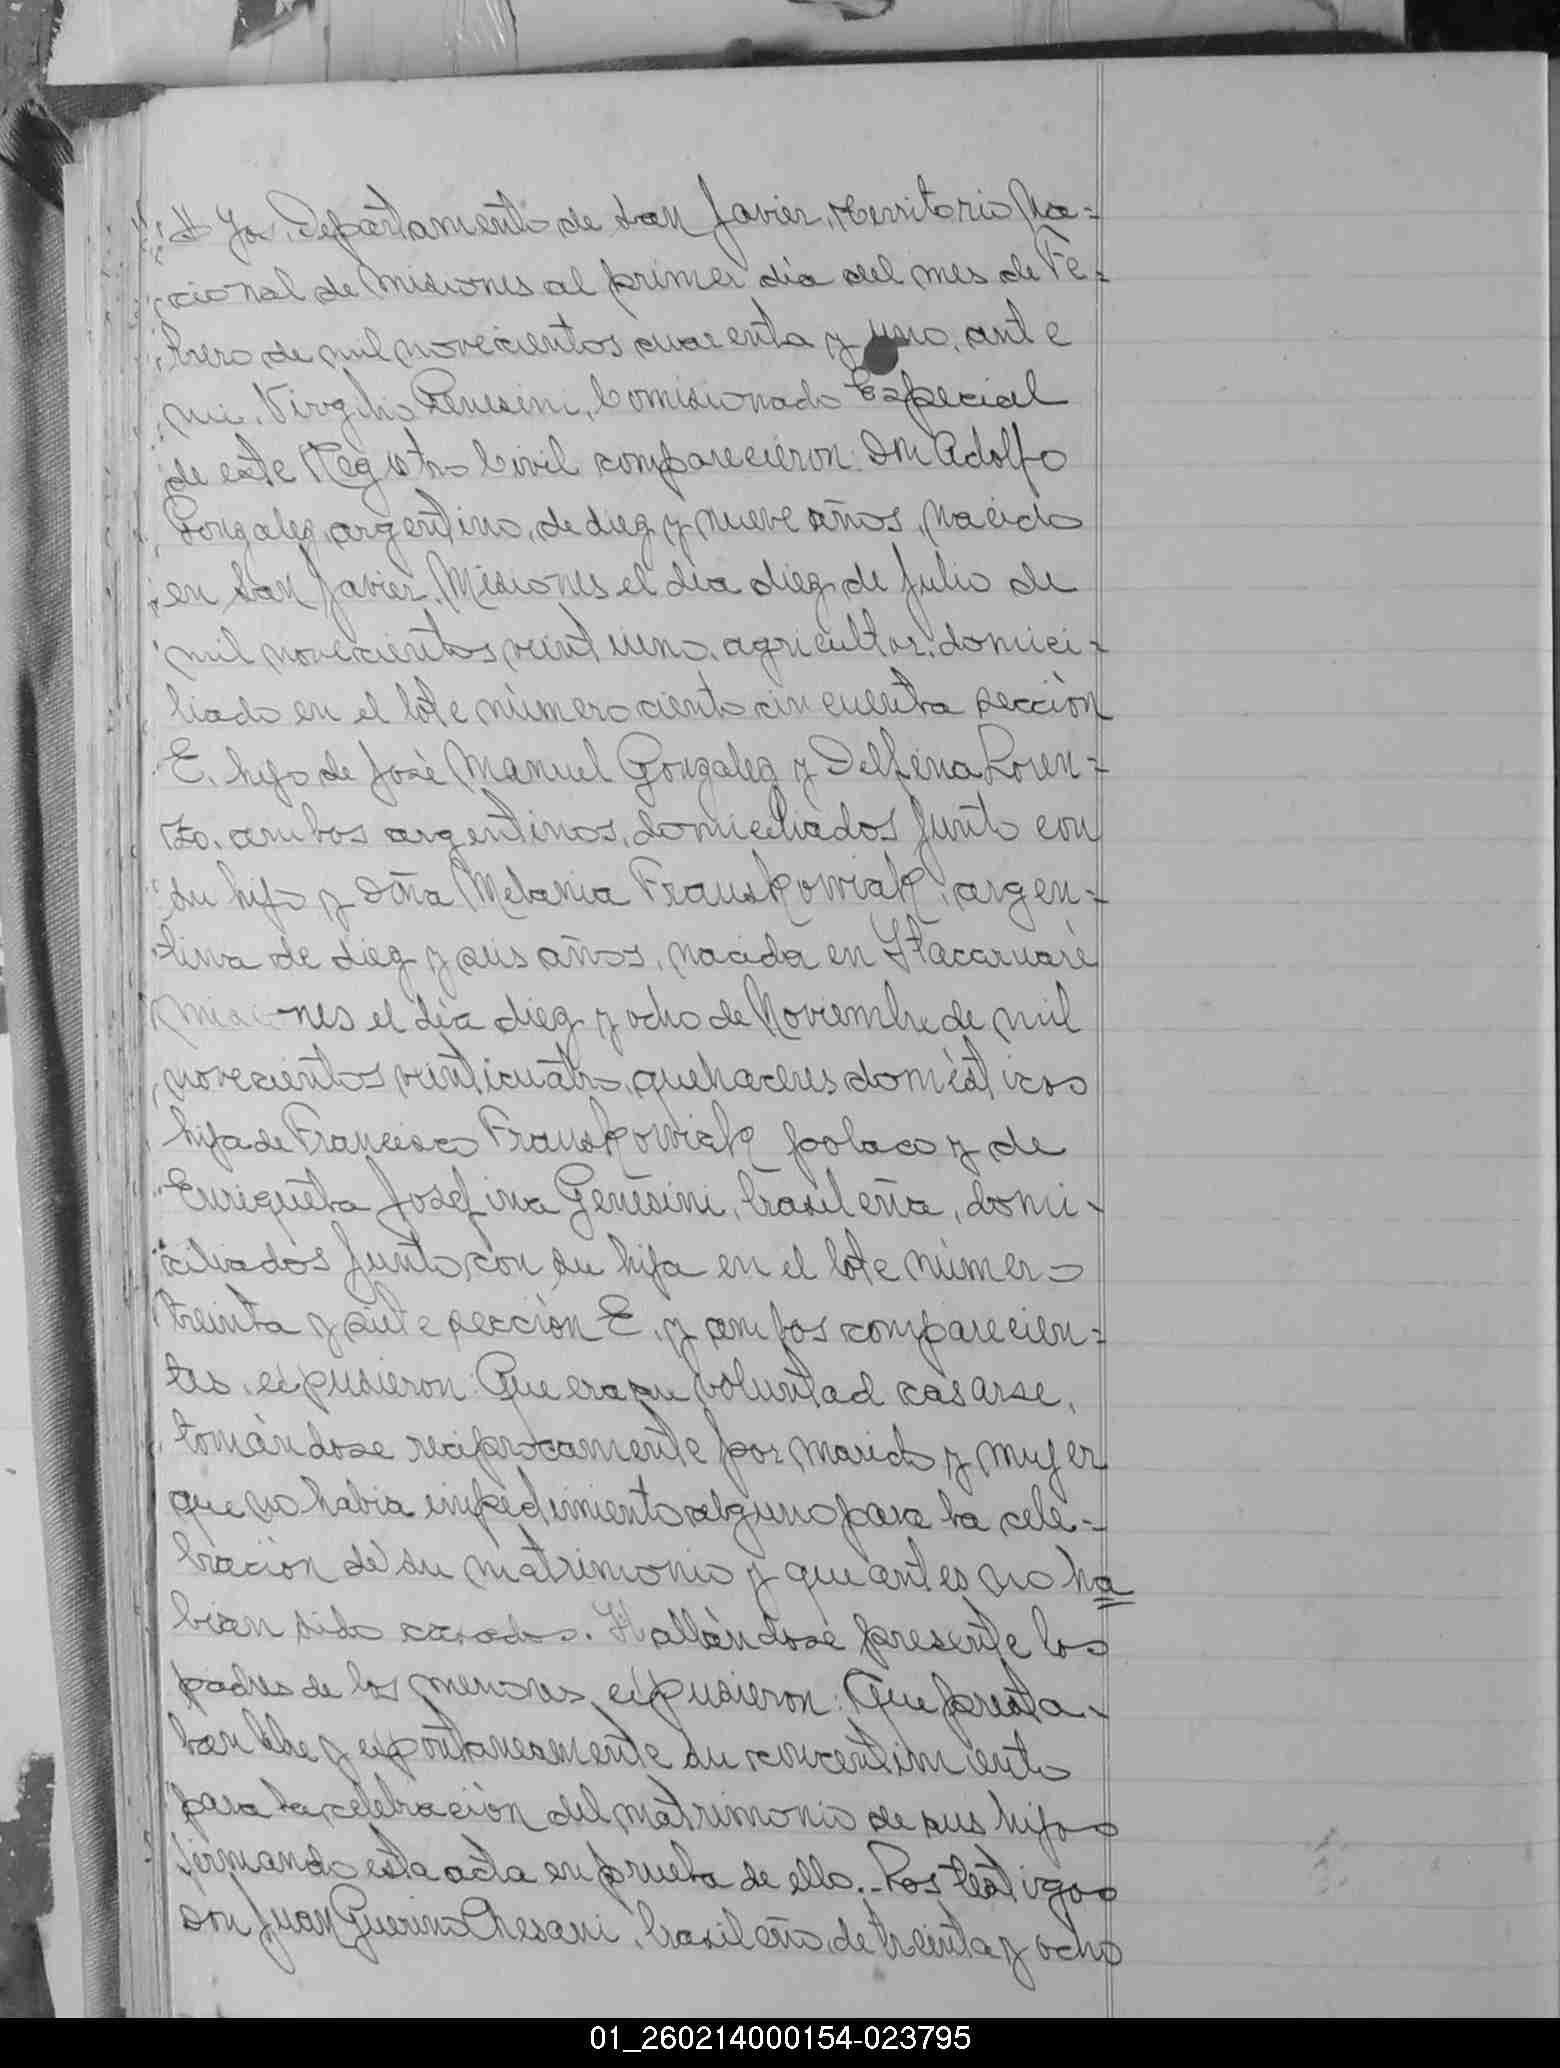 Departamento de San Javier, Territorio Na=
cional de Misiones al primer día del mes de Fe=
brero de mil novecientos cuarenta y uno, ante
mi, Virgilio Genesini, Comisionado Especial
de este Registro Civil comparecieron: Don Adolfo
Gonzalez, argentino, de diez y nueve años, nacido
en San Javier, Misiones el día diez de Julio de
mil novecientos veintiuno, agricultor, domici=
liado en el lote número ciento cincuenta sección
E, hijo de José Manuel Gonzalez y Delfina Loren=
zo, ambos argentinos, domiciliados junto con
su hijo y Doña Melania Franskowiak, argen=
tina de diez y seis años, nacida en Itacaruaré
Misiones el día diez y ocho de Noviembre de mil
novecientos veinticuatro, quehaceres domésticos
hija de Francisco Franskowiak polaco y de
Enriqueta Josefina Genesini, brasileña, domi-
ciliados junto con su hija en el lote número
treinta y siete sección E, y ambos comparecien=
tes, expusieron: Que era su voluntad casarse,
tomándose reciprocamente por marido y mujer
que no habia impedimento alguno para la cele-
bración de su matrimonio y que antes no ha
bian sido casados. Hallándose presente los
padres de los menores expusieron: Que presta-
ban libre y expontaneamente su concentimiento
para la celebración del matrimonio de sus hijos
firmando esta acta en prueba de ello.- Los testigos
don Juan Guerino Chesani, brasileño, de treinta y ocho
01_260214000154-023795